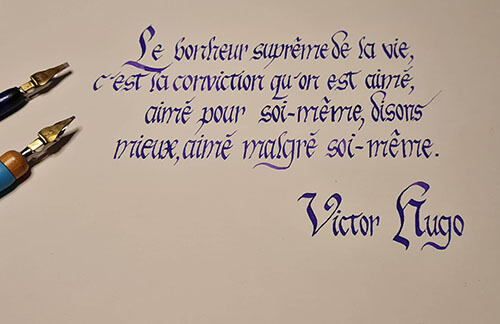 Le bonheur suprême de la vie,
c'est la conviction qu'on est aimé,
aimé pour soi-même, disons
mieux, aimé malgré soi-même.
Victor Hugo